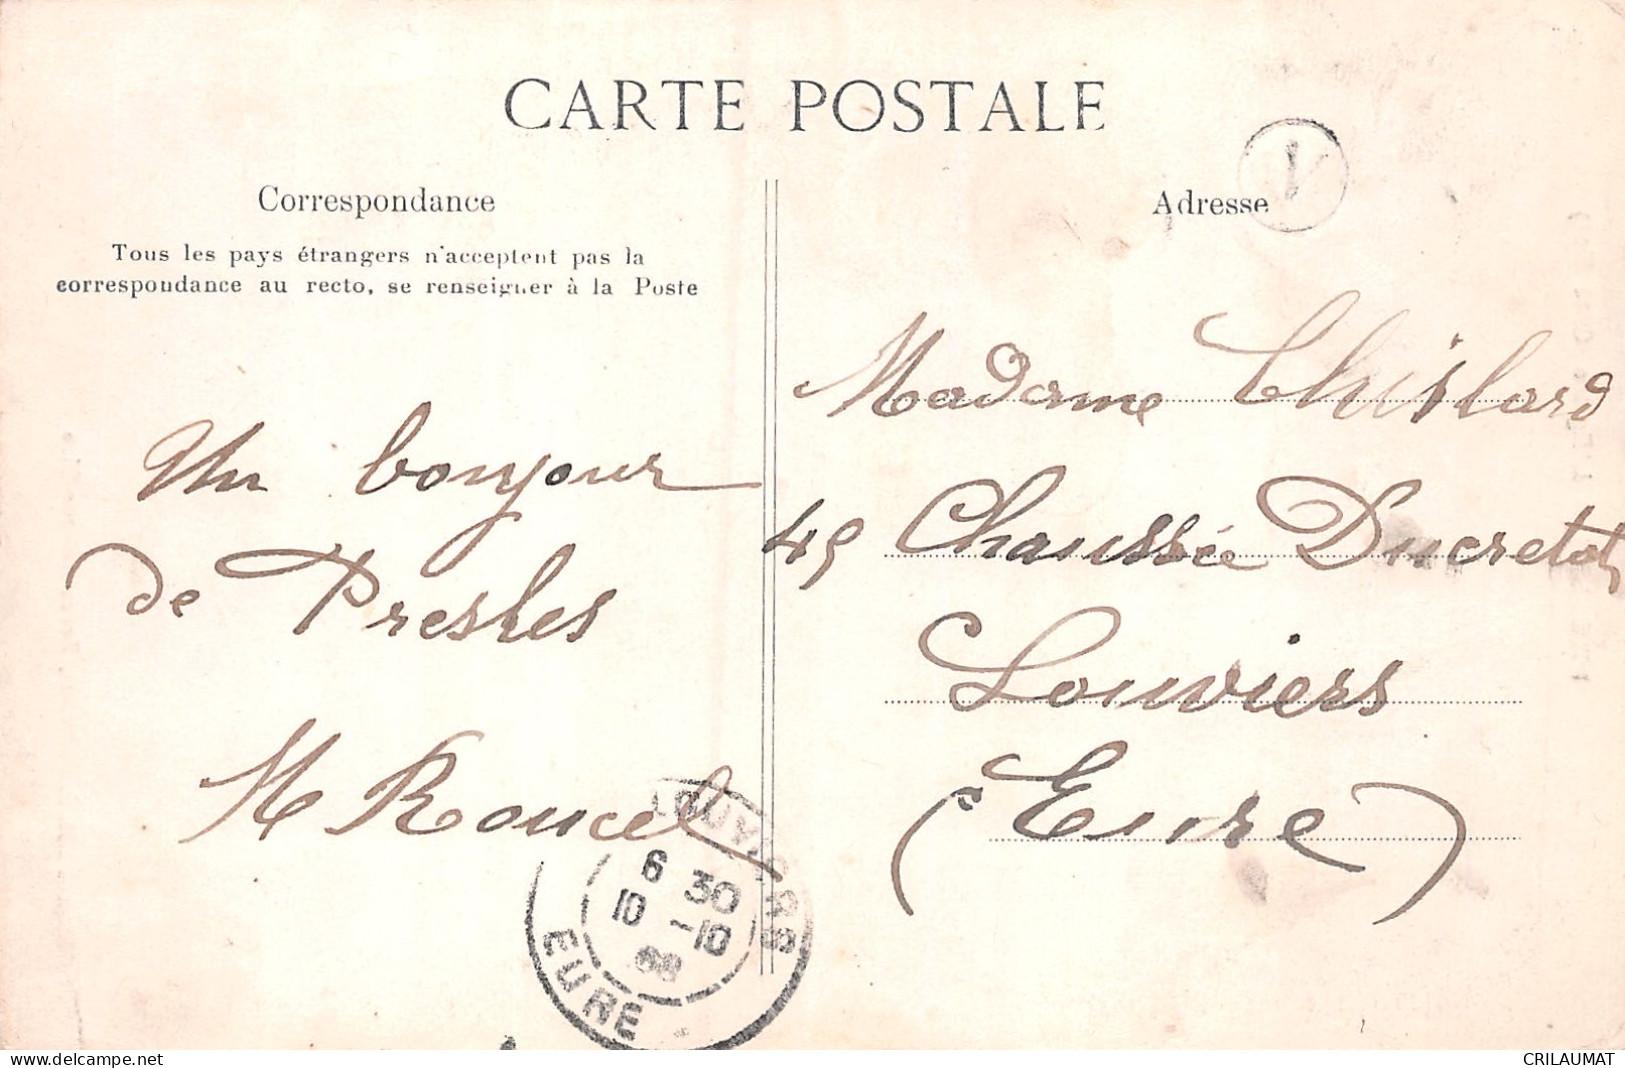 CARTE POSTALE
Correspondance
Tous les pays étrangers n'acceptent pas la
correspondance au recto, se renseigner à la Poste
Un bonjour
de Presles
M Roucel
Adresse
Madame Ghislard
49 Chaussée Ducretot
Louviers
(Eure)
LOUVIERS
6 30
10 -10
08
EURE
delcampe.net
CRILAUMAT